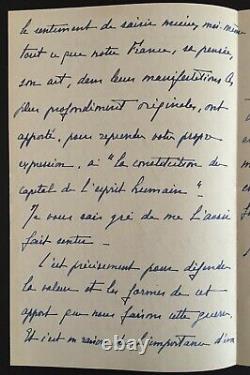 le sentiment de saisir mieux, moi-même
tout ce que notre France, sa pensée,
son art, dans leurs manifestations les
plus profondément originales, ont
apporté, pour reprendre votre propre
expression, à "la constitution du
capital de l'esprit humain".
Je vous sais gré de me l'avoir
fait sentir —
C'est précisément pour défendre
la valeur et les formes de cet
apport que nous faisons cette guerre.
Et c'est en raison de l'importance d'un
© 132th.com